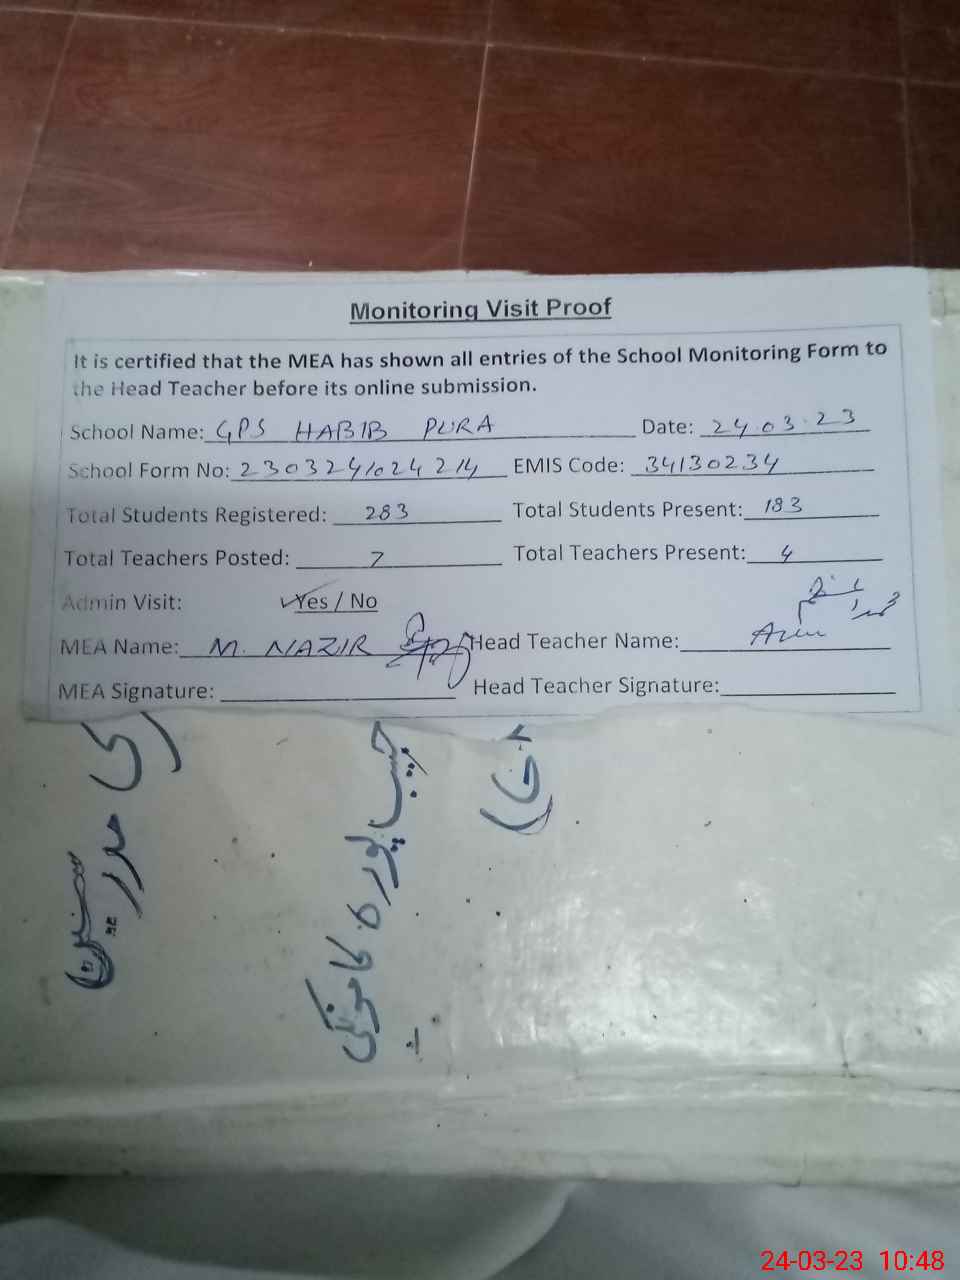 Monitoring Visit Proof
It is certified that the MEA has shown all entries of the School Monitoring Form to
the Head Teacher before its online submission.
School Name: GPS HABIB PURA Date: 24.03.23
School Form No: 2303241024214 EMIS Code: 34130234
Total Students Registered: 283 Total Students Present: 183
Total Teachers Posted: 7 Total Teachers Present: 4
Admin Visit: ✓Yes / No
MEA Name: M. NAZIR Head Teacher Name:
MEA Signature: Head Teacher Signature:
حبیب پورہ کامونکی
24-03-23 10:48